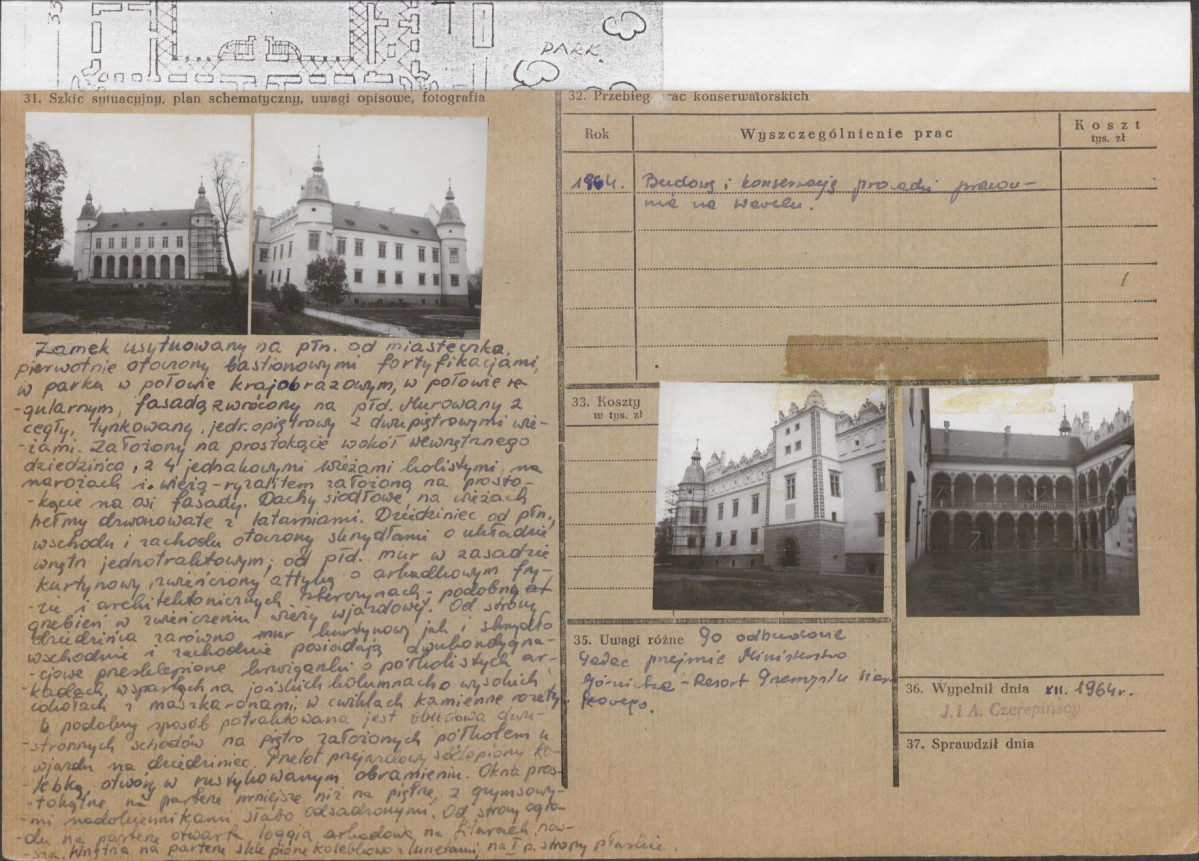 33
PARK.
31. Szkic sytuacyjny, plan schematyczny, uwagi opisowe, fotografia
Zamek usytuowany na płn. od miasteczka,
pierwotnie otoczony bastionowymi fortyfikacjami,
w parku w połowie krajobrazowym, w połowie re-
-gularnym, fasadą zwrócony na płd. Murowany z
cegły, tynkowany, jednopiętrowy z dwupiętrowymi wie-
-żami. Założony na prostokącie wokół wewnętrznego
dziedzińca, z 4 jednakowymi wieżami kolistymi, na
narożach i wieżą-ryzalitem założoną na prosto-
-kącie na osi fasady. Dachy siodłowe, na wieżach
hełmy dzwonowate z latarniami. Dziedziniec od płn.,
wschodu i zachodu otoczony skrzydłami o układzie
wnętrz jednotraktowym, od płd. mur w zasadzie
kurtynowy, zwieńczony attyką o arkadkowym fry-
-zie i architektonicznych szterczynach, podobną at
grzebień w zwieńczeniu wieży wjazdowej. Od strony
dziedzińca zarówno mur kurtynowy jak i skrzydło
wschodnie i zachodnie posiadają dwukondygna-
-cjowe przesklepione krużganki o półkolistych ar-
-kadach, wspartych na jońskich kolumnach o wysokich
cokołach z maszkaronami, w cwiklach kamienne rozety.
W podobny sposób potraktowana jest obudowa dwu-
-stronnych schodów na piętro założonych półkolem u
wjazdu na dziedziniec. Przelot przejazdowy sklepiony ko-
-lebką, otwory w rustykowanym obramieniu. Okna pros-
-tokątne, na parterze mniejsze niż na piętrze, z gzymsowy-
-mi nadokiennikami słabo odsadzonymi. Od strony ogro-
-du na parterze otwarta loggia arkadowa na filarach, now-
-sza. Wnętrza na parterze sklepione kolebkowo z lunetami, na I p. stropy płaskie.
32. Przebieg prac konserwatorskich
Rok
Wyszczególnienie prac
Koszt
tys. zł
1964. Budowę i konserwację prowadzi pracow-
nia na Wawelu.
33. Koszty
w tys. zł
35. Uwagi różne Po odbudowie
Pałac przejmie Ministerstwo
Górnictwa - Resort Przemysłu Siar-
kowego.
36. Wypełnił dnia XII. 1964 r.
J. i A. Czerepińscy
37. Sprawdził dnia